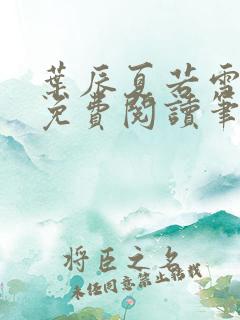 葉辰夏若雪
免費閱讀筆
将臣之名
未经同意禁止转载